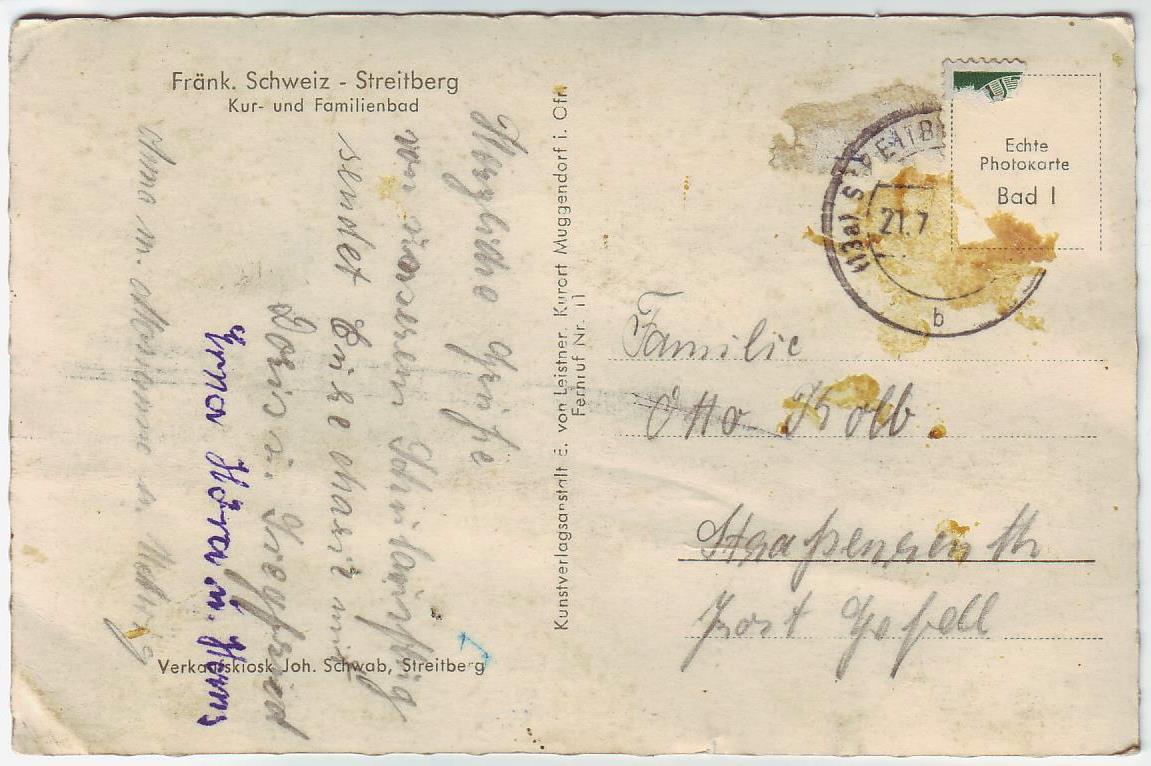 Fränk. Schweiz - Streitberg
Kur- und Familienbad
Herzliche Grüße
von unserem Schulausflug
sendet Euch Marie mit
Doris u. Siegfried
Erna Höra m.
Anna m.
Verkaufskiosk Joh. Schwab, Streitberg
Kunstverlagsanstalt E. von Leistner, Kurort Muggendorf i. Ofr.
Fernruf Nr. 11
(13a) STREITB
21.7
b
Echte
Photokarte
Bad 1
Familie
Otto Kolb.
Straßenreuth
Post Gefell